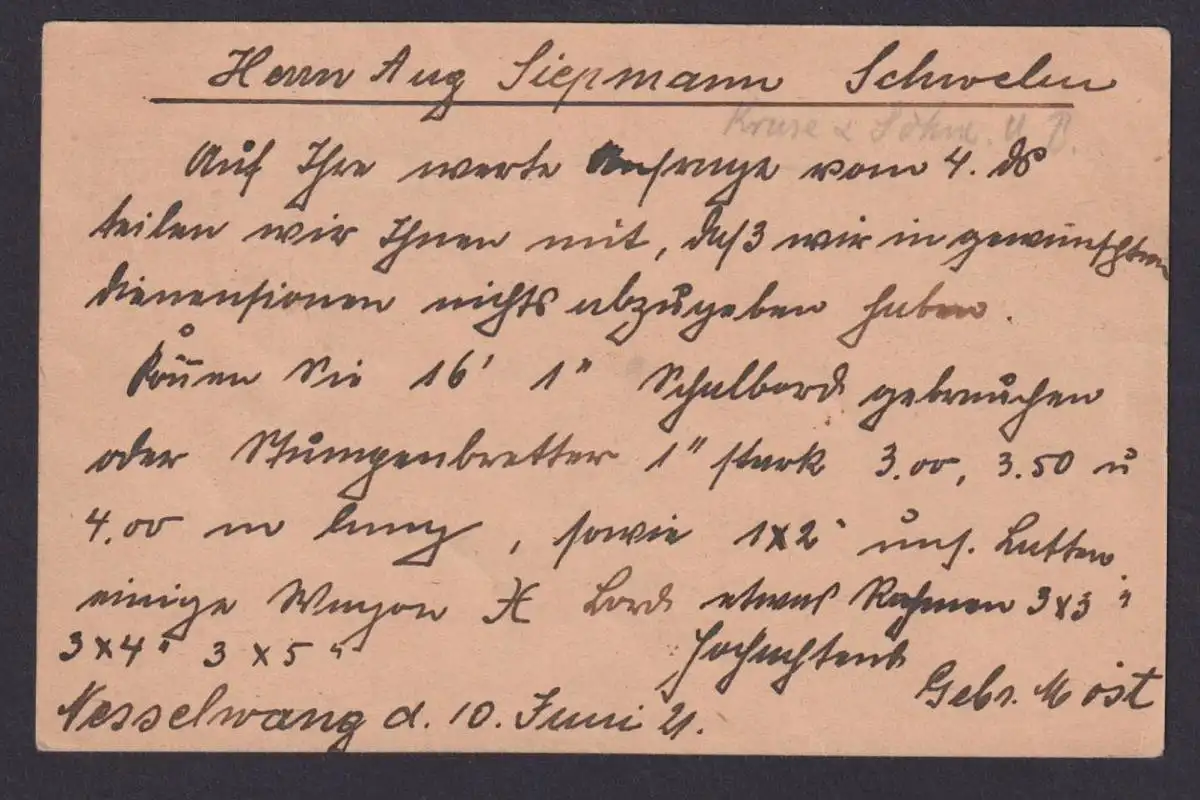 Herrn Aug Siepmann Schwelm
Kruse & Söhne. U. B.
Auf Ihre werte Anfrage vom 4. ds
teilen wir Ihnen mit, daß wir in gewünschten
Dimensionen nichts abzugeben haben.
Können Sie 16' 1" Schalbord gebrauchen
oder Stumpenbretter 1" stark 3.00, 3.50 u
4.00 m lang, sowie 1x2" uns. Latten
einige Wagon Bord etwas Rahmen 3x3"
3x4" 3x5"
Hochachtend
Gebr. Möst
Nesselwang d. 10. Juni 21.